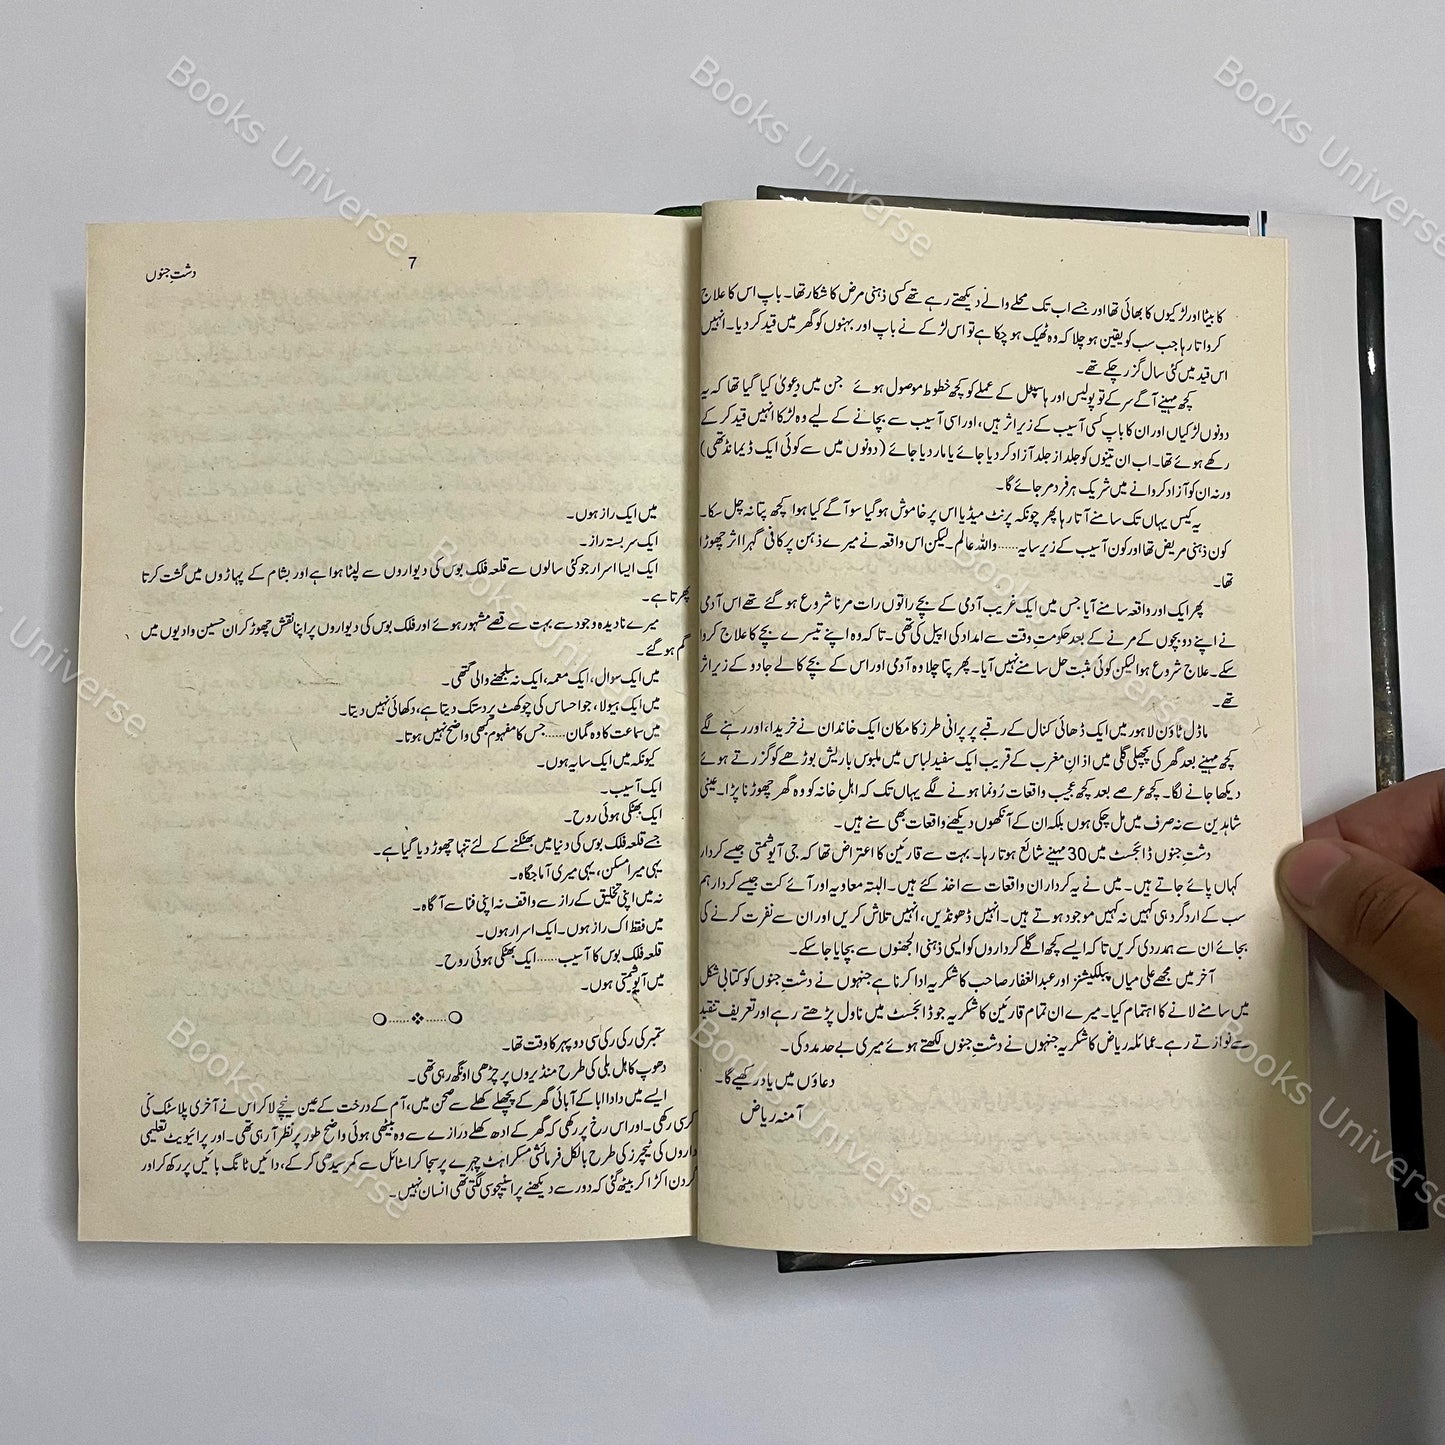 کا بیٹا اور لڑکیوں کا بھائی تھا اور جسے اب تک محلے والے دیکھتے رہے تھے کسی ذہنی مرض کا شکار تھا۔ باپ اس کا علاج
کرواتا رہا جب سب کو یقین ہو چلا کہ وہ ٹھیک ہو چکا ہے تو اس لڑکے نے باپ اور بہنوں کو گھر میں قید کر دیا۔ انہیں
اس قید میں کئی سال گزر چکے تھے۔
کچھ مہینے آگے سرکے تو پولیس اور ہاسپٹل کے عملے کو کچھ خطوط موصول ہوئے جن میں دعویٰ کیا گیا تھا کہ یہ
دونوں لڑکیاں اور ان کا باپ کسی آسیب کے زیر اثر ہیں، اور اسی آسیب سے بچانے کے لیے وہ لڑکا انہیں قید کر کے
رکھے ہوئے تھا۔ اب ان تینوں کو جلد از جلد آزاد کر دیا جائے یا مار دیا جائے (دونوں میں سے کوئی ایک ڈیمانڈ تھی)
ورنہ ان کو آزاد کروانے میں شریک ہر فرد مر جائے گا۔
یہ کیس یہاں تک سامنے آتا رہا پھر چونکہ پرنٹ میڈیا اس پر خاموش ہو گیا سو آگے کیا ہوا کچھ پتا نہ چل سکا۔
کون ذہنی مریض تھا اور کون آسیب کے زیر سایہ...... واللہ عالم۔ لیکن اس واقعہ نے میرے ذہن پر کافی گہرا اثر چھوڑا
تھا۔
پھر ایک اور واقعہ سامنے آیا جس میں ایک غریب آدمی کے بچے راتوں رات مرنا شروع ہو گئے تھے اس آدمی
نے اپنے دو بچوں کے مرنے کے بعد حکومتِ وقت سے امداد کی اپیل کی تھی۔ تا کہ وہ اپنے تیسرے بچے کا علاج کروا
سکے۔ علاج شروع ہوا لیکن کوئی مثبت حل سامنے نہیں آیا۔ پھر پتا چلا وہ آدمی اور اس کے بچے کالے جادو کے زیر اثر
تھے۔
ماڈل ٹاؤن لاہور میں ایک ڈھائی کنال کے رقبے پر پرانی طرز کا مکان ایک خاندان نے خریدا، اور رہنے لگے
کچھ مہینے بعد گھر کی پچھلی گلی میں اذانِ مغرب کے قریب ایک سفید لباس میں ملبوس باریش بوڑھے کو گزرتے ہوئے
دیکھا جانے لگا۔ کچھ عرصے بعد کچھ عجیب واقعات رُونما ہونے لگے یہاں تک کہ اہلِ خانہ کو وہ گھر چھوڑنا پڑا۔ عینی
شاہدین سے نہ صرف میں مل چکی ہوں بلکہ ان کے آنکھوں دیکھے واقعات بھی سنے ہیں۔
دشتِ جنوں ڈائجسٹ میں 30 مہینے شائع ہوتا رہا۔ بہت سے قارئین کا اعتراض تھا کہ جی آیوشمتی جیسے کردار
کہاں پائے جاتے ہیں۔ میں نے یہ کردار ان واقعات سے اخذ کئے ہیں۔ البتہ معاویہ اور آئے کت جیسے کردار ہم
سب کے اردگرد ہی کہیں نہ کہیں موجود ہوتے ہیں۔ انہیں ڈھونڈیں، انہیں تلاش کریں اور ان سے نفرت کرنے کی
بجائے ان سے ہمدردی کریں تا کہ ایسے کچھ اگلے کرداروں کو ایسی ذہنی الجھنوں سے بچایا جا سکے۔
آخر میں مجھے علی میاں پبلکیشنز اور عبدالغفار صاحب کا شکریہ ادا کرنا ہے جنہوں نے دشتِ جنوں کو کتابی شکل
میں سامنے لانے کا اہتمام کیا۔ میرے ان تمام قارئین کا شکریہ جو ڈائجسٹ میں ناول پڑھتے رہے اور تعریف تنقید
سے نوازتے رہے۔ عمائلہ ریاض کا شکریہ جنہوں نے دشتِ جنوں لکھتے ہوئے میری بے حد مدد کی۔
دعاؤں میں یاد رکھیے گا۔
آمنہ ریاض
دشتِ جنوں
7
میں ایک راز ہوں۔
ایک سربستہ راز۔
ایک ایسا اسرار جو کئی سالوں سے قلعہ فلک بوس کی دیواروں سے لپٹا ہوا ہے اور بشام کے پہاڑوں میں گشت کرتا
پھرتا ہے۔
میرے نادیدہ وجود سے بہت سے قصے مشہور ہوئے اور فلک بوس کی دیواروں پر اپنا نقش چھوڑ کر ان حسین وادیوں میں
گم ہو گئے۔
میں ایک سوال، ایک معمہ، ایک نہ سلجھنے والی گتھی۔
میں ایک ہیولا، جو احساس کی چوکھٹ پر دستک دیتا ہے، دکھائی نہیں دیتا۔
میں سماعت کا وہ گمان...... جس کا مفہوم کبھی واضح نہیں ہوتا۔
کیونکہ میں ایک سایہ ہوں۔
ایک آسیب۔
ایک بھٹکی ہوئی روح۔
جسے قلعہ فلک بوس کی دنیا میں بھٹکنے کے لئے تنہا چھوڑ دیا گیا ہے۔
یہی میرا مسکن، یہی میری آماجگاہ۔
نہ میں اپنی تخلیق کے راز سے واقف نہ اپنی فنا سے آگاہ۔
میں فقط اک راز ہوں۔ ایک اسرار ہوں۔
قلعہ فلک بوس کا آسیب...... ایک بھٹکی ہوئی روح۔
میں آیوشمتی ہوں۔
ستمبر کی رکی رکی سی دوپہر کا وقت تھا۔
دھوپ کاہل بلی کی طرح منڈیروں پر چڑھی اونگھ رہی تھی۔
ایسے میں دادا ابا کے آبائی گھر کے پچھلے کھلے سے صحن میں، آم کے درخت کے عین نیچے لا کر اس نے آخری پلاسٹک کی
کرسی رکھی۔ اور اس رخ پر رکھی کہ گھر کے ادھ کھلے درازے سے وہ بیٹھی ہوئی واضح طور پر نظر آ رہی تھی۔ اور پرائیویٹ تعلیمی
داروں کی ٹیچرز کی طرح بالکل فرمائشی مسکراہٹ چہرے پر سجا کر اسٹائل سے کمر سیدھی کر کے، دائیں ٹانگ بائیں پر رکھ کر اور
گردن اکڑا کر بیٹھ گئی کہ دور سے دیکھنے پر اسٹیچو سی لگتی تھی انسان نہیں۔
Books Universe
Books Universe
Books Universe
Universe
Books Universe
Books Universe
Books Universe
Books Universe
Books Universe